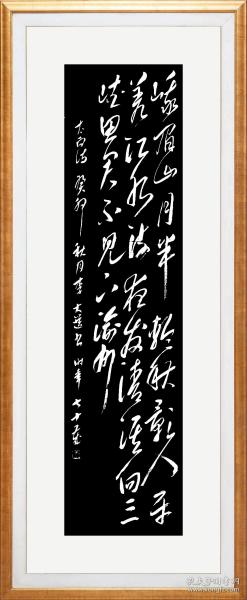 峨眉山月半輪秋影入平
羌江水流夜发清溪向三
峡思君不见下渝州
太白诗 癸卯秋月李书 时年七十